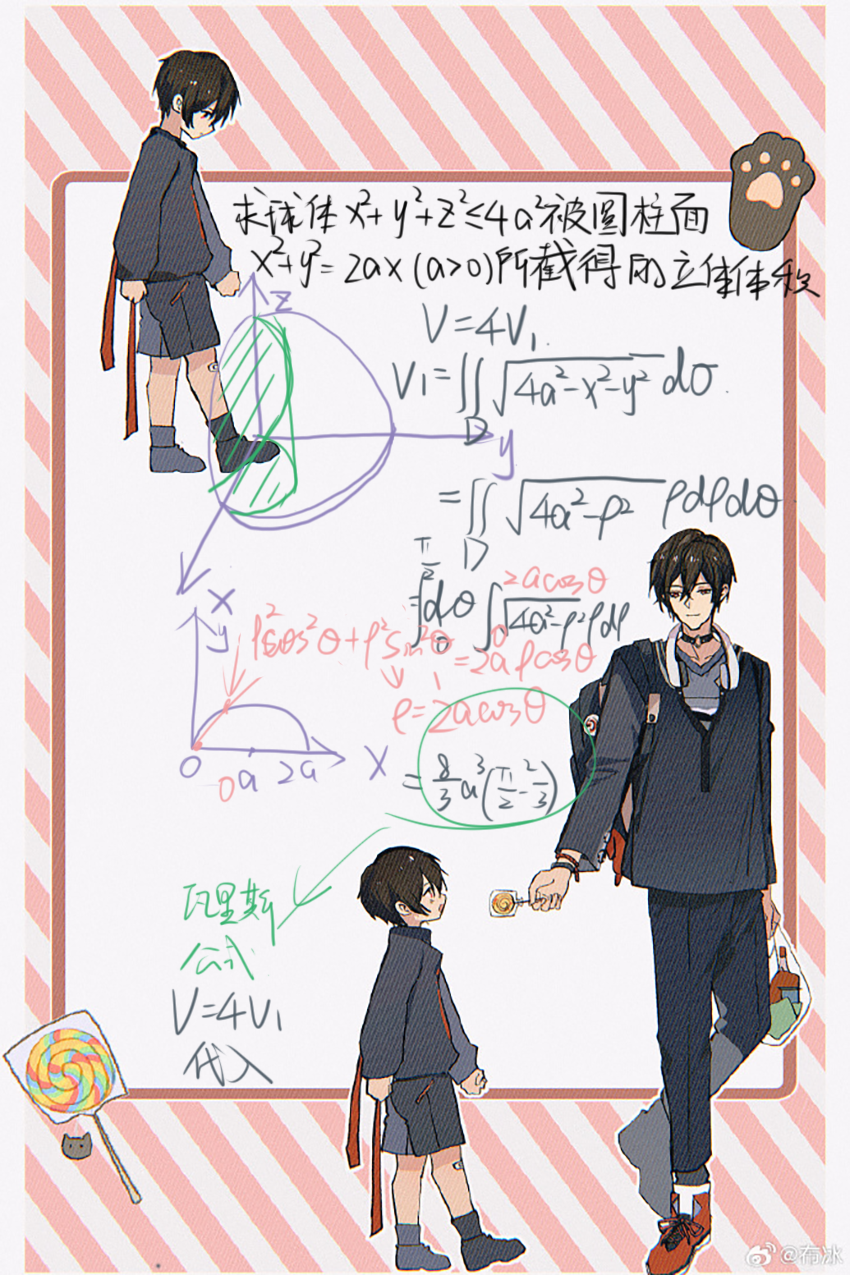 求球体 x²+y²+z²≤4a²被圆柱面
x²+y²=2ax (a>0)所截得的立体体积
z
y
x
V=4V₁.
V₁=∬_D √(4a²-x²-y²) dσ.
=∬_D √(4a²-ρ²) ρdρdθ
=∫₀^(π/2) dθ ∫₀^(2acosθ) √(4a²-ρ²) ρdρ
y
ρ²cos²θ+ρ²sin²θ=2aρcosθ
ρ=2acosθ
O
0
a
2a
x
=8/3 a³(π/2-2/3)
瓦里斯
公式
V=4V₁
代入
@布冰